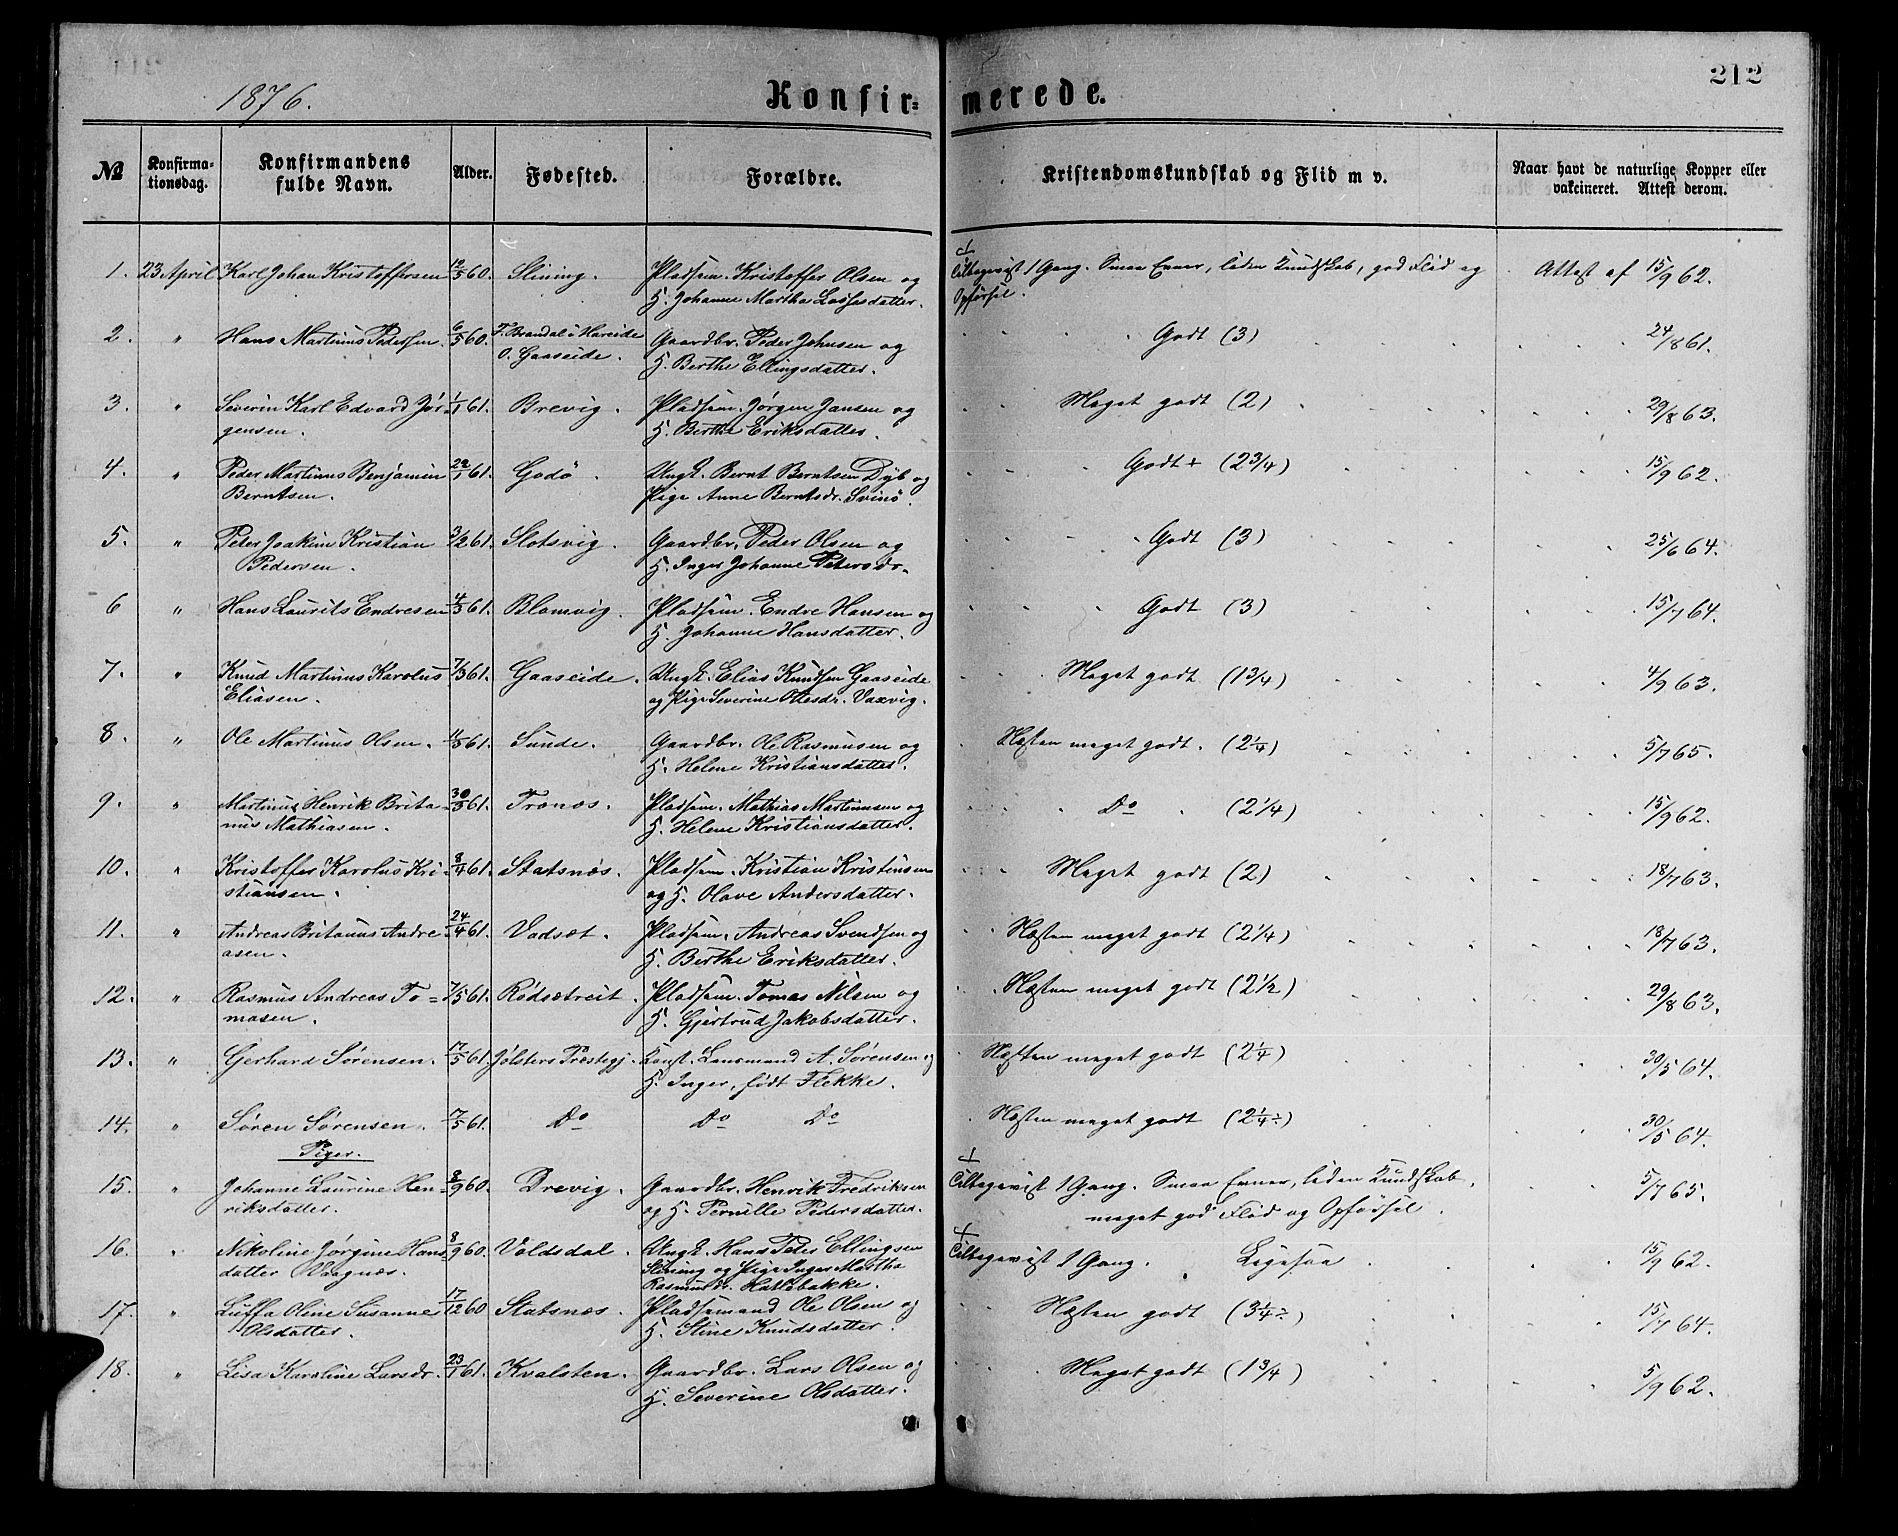 212
1876.
Konfir=
merede.
№
Konfirma=
tionsdag.
Konfirmandens
fulde Navn.
Alder.
Fødested.
Forældre.
Kristendomskundskab og Flid m v.
Naar havt de naturlige Kopper eller
vakcineret. Attest derom.
1. 23 April Karl Johan Kristoffersen 12/5 60. Slining. Pladsm. Kristoffer Olsen og Tilbagevist 1 Gang. Smaa Evner, liden Kundskab, god Flid og Attest af 15/9 62.
H. Johanne Martha Lassesdatter. Opførsel.
2. " Hans Martinus Pedersen. 6/5 60. F. Brandal i Hareide Gaardbr. Peder Johnsen og Godt (3) 24/8 61.
O. Gaaseide. H. Berthe Ellingsdatter.
3. " Severin Karl Edvard Jør- 1/1 61. Brevig. Pladsm. Jørgen Jansen og Meget godt (2) 29/8 63.
gensen. H. Berthe Eriksdatter.
4. " Peder Martinus Benjamin 22/1 61. Godø. Ungk. Bernt Berntsen Dyb og Godt + (2 3/4) 15/9 62.
Berntsen. Pige Anne Berntsdr. Svinø.
5. " Peter Joakim Kristian 3/2 61. Slotsvig. Gaardbr. Peder Olsen og Godt (3) 25/6 64.
Pedersen. H. Inger Johanne Petersdr.
6 " Hans Laurits Endresen 4/3 61. Blomvig. Pladsm. Endre Hansen og Godt (3) 15/7 64.
H. Johanne Hansdatter.
7. " Knud Martinus Karolus 7/3 61. Gaaseide. Ungk. Elias Knudsen Gaaseide Meget godt (1 3/4) 4/9 63.
Eliasen. og Pige Severine Ottesdr. Vaxvig.
8. " Ole Martinus Olsen. 11/3 61. Sunde. Gaardbr. Ole Rasmusen og Næsten meget godt. (2 1/4) 5/7 65.
H. Helene Kristiansdatter.
9. " Martinus Henrik Brita- 30/3 61. Tronæs. Pladsm. Mathias Martinusen og Do (2 1/4) 15/9 62.
nus Mathiasen. H. Helene Kristiansdatter.
10. " Kristoffer Karolus Kri- 8/4 61. Statsnæs. Pladsm. Kristian Kristensen Meget godt (2) 18/7 63.
stiansen. og H. Olave Andersdatter.
11. " Andreas Britanus Andre- 24/4 61. Vadsæt. Pladsm. Andreas Svendsen og Næsten meget godt (2 1/4) 18/7 63.
asen. H. Berthe Eriksdatter.
12. " Rasmus Andreas To- 7/5 61. Rødsætreit. Pladsm. Tomas Nilsen og Næsten meget godt (2 1/2) 29/8 63.
masen. H. Gjertrud Jakobsdatter.
13. " Gerhard Sørensen. 17/5 61. Jølsters Præstegj. Konst. Lensmand A. Sørensen og Næsten meget godt (2 1/4) 30/5 64.
H. Inger, født Flekke.
14. " Søren Sørensen. 17/5 61. Do Do Do Næsten meget godt (2 1/4÷) 30/5 64.
Piger.
15. " Johanne Laurine Hen- 8/9 60. Drevig. Gaardbr. Henrik Fredriksen Tilbagevist 1 Gang. Smaa Evner, liden Kundskab, 5/7 65.
riksdatter. og H. Pernille Pedersdatter. meget god Flid og Opførsel.
16. " Nikoline Jørgine Hans- 8/9 60. Voldsdal. Ungk. Hans Peter Ellingsen Tilbagevist 1 Gang. Ligesaa 15/9 62.
datter Vaagnæs. Slining og Pige Inger Martha
Rasmusdr. Hattebakke.
17. " Luffa Oline Susanne 17/12 60 Statsnæs. Pladsemand Ole Olsen og Næsten godt (3 1/4÷) 15/7 64.
Olsdatter. H. Stine Knudsdatter.
18. " Lisa Karoline Larsdr. 23/1 61. Kvalsten. Gaardbr. Lars Olsen og Meget godt (1 3/4) 5/9 62.
H. Severine Olsdatter.